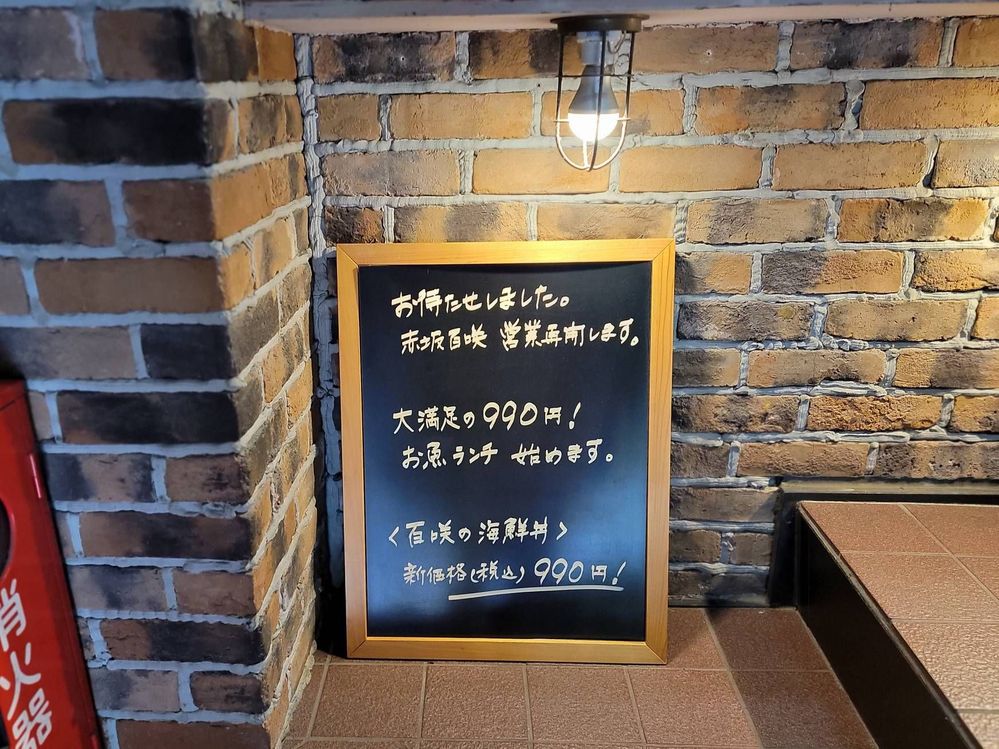 お待たせしました。
赤坂百咲 営業再開します。
大満足の990円!
お魚ランチ 始めます。
<百咲の海鮮丼>
新価格(税込)990円!
消火器